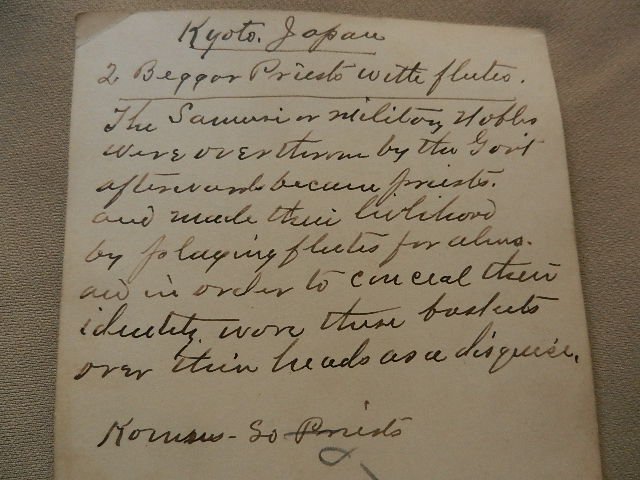 Kyoto. Japan
2 Beggar Priests with flutes.
The Samuri or military Nobls
were overthrown by the Gov't
afterwards became priests.
and made their livlihood
by playing flutes for alms.
and in order to conceal their
identity, wore these baskets
over their heads as a disguise.
Komuso - So Priests